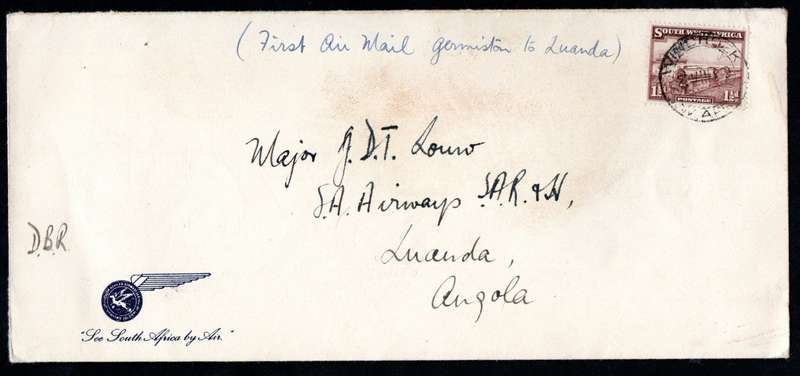 (First Air Mail Germiston to Luanda)
SOUTH WEST AFRICA
1½d 1½d
POSTAGE
Major J.D.T. Louw
S.A. Airways S.A.R. & H,
Luanda,
Angola
D.B.R.
"See South Africa by Air."